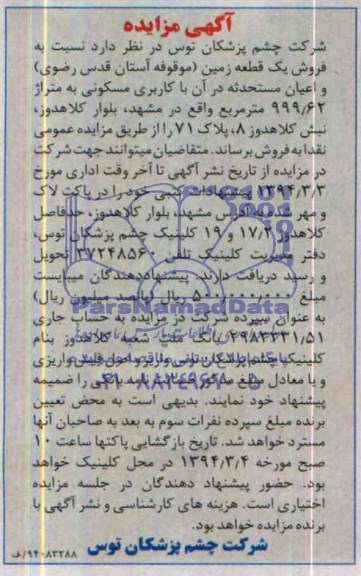 آگهی مزایده
شرکت چشم پزشکان توس در نظر دارد نسبت به
فروش یک قطعه زمین (موقوفه آستان قدس رضوی)
و اعیان مستحدثه در آن با کاربری مسکونی به متراژ
۹۹۹/۶۲ مترمربع واقع در مشهد، بلوار کلاهدوز،
نبش کلاهدوز ۸، پلاک ۷۱ را از طریق مزایده عمومی
نقدا به فروش برساند. متقاضیان میتوانند جهت شرکت
در مزایده از تاریخ نشر آگهی تا آخر وقت اداری مورخ
۱۳۹۴/۳/۳ پیشنهادات کتبی خود را در پاکت لاک
و مهر شده به آدرس مشهد، بلوار کلاهدوز، حدفاصل
کلاهدوز ۱۷/۲ و ۱۹ کلینیک چشم پزشکان توس،
دفتر مدیریت کلینیک تلفن ۳۷۲۴۸۵۶۰ تحویل
و رسید دریافت دارند. پیشنهاددهندگان میبایست
مبلغ ۵۰۰/۰۰۰/۰۰۰ ریال (پانصد میلیون ریال)
به عنوان سپرده شرکت در مزایده به حساب جاری
۲۹۸۳۳۳۱/۵۱ بانک ملت شعبه کلاهدوز بنام
کلینیک چشم پزشکان توس واریز و اصل فیش واریزی
و یا معادل مبلغ مذکور ضمانتنامه بانکی را ضمیمه
پیشنهاد خود نمایند. بدیهی است به محض تعیین
برنده مبلغ سپرده نفرات سوم به بعد به صاحبان آنها
مسترد خواهد شد. تاریخ بازگشایی پاکتها ساعت ۱۰
صبح مورخه ۱۳۹۴/۳/۴ در محل کلینیک خواهد
بود. حضور پیشنهاد دهندگان در جلسه مزایده
اختیاری است. هزینه های کارشناسی و نشر آگهی با
برنده مزایده خواهد بود.
شرکت چشم پزشکان توس
۹۴-۸۳۲۸۸/ف
ParsNamadData